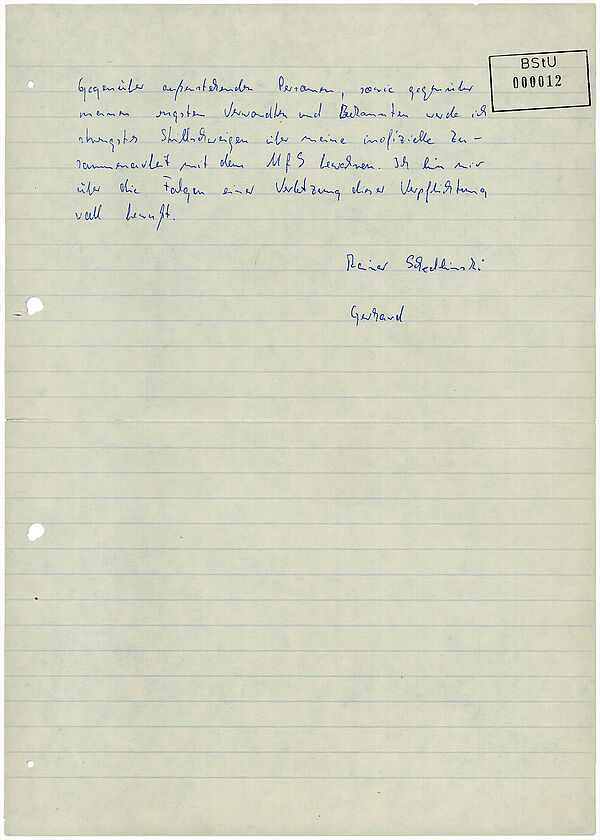 BStU
000012
Gegenüber außenstehenden Personen, sowie gegenüber
meinen engsten Verwandten und Bekannten werde ich
strengstes Stillschweigen über meine inoffizielle Zu-
sammenarbeit mit dem MfS bewahren. Ich bin mir
über die Folgen einer Verletzung dieser Verpflichtung
voll bewußt.
Rainer Schedlinski
Gerhard